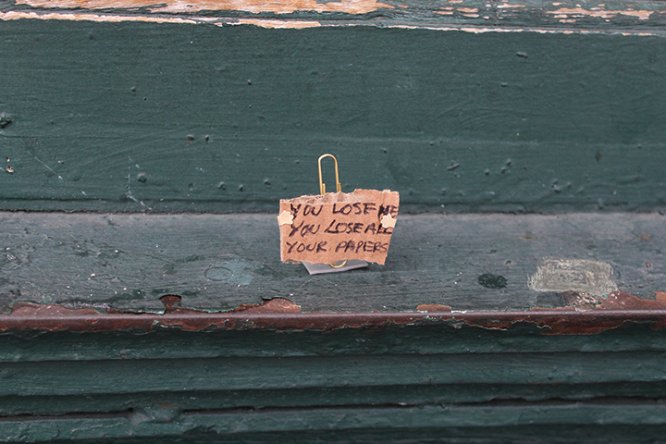 YOU LOSE ME
YOU LOSE ALL
YOUR PAPERS